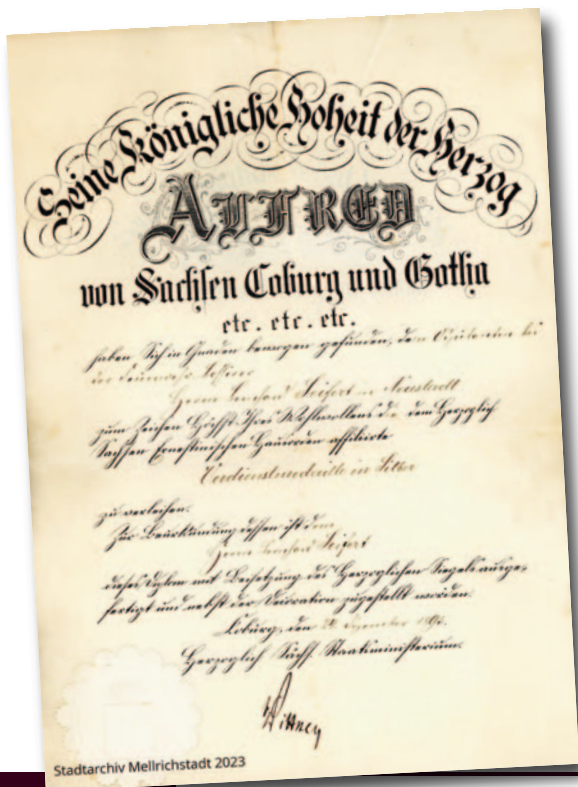 Seine Königliche Hoheit der Herzog
ALFRED
von Sachsen Coburg und Gotha
etc. etc. etc.
haben Sich in Gnaden bewogen gefunden, dem bei
der Feuerwehr
Herrn Seifert in Neustadt
zum Zeichen Höchst Ihres Wohlwollens die dem Herzoglich
Sachsen Ernestinischen Hausorden affiliirte
Verdienstmedaille in Silber
zu verleihen.
Zur Beurkundung dessen ist dem
Herrn Seifert
dieses Diplom mit Beisetzung des Herzoglichen Siegels ausge-
fertigt und nebst der Decoration zugestellt worden.
Coburg, den
Herzoglich Sächs. Staatsministerium.
Stadtarchiv Mellrichstadt 2023